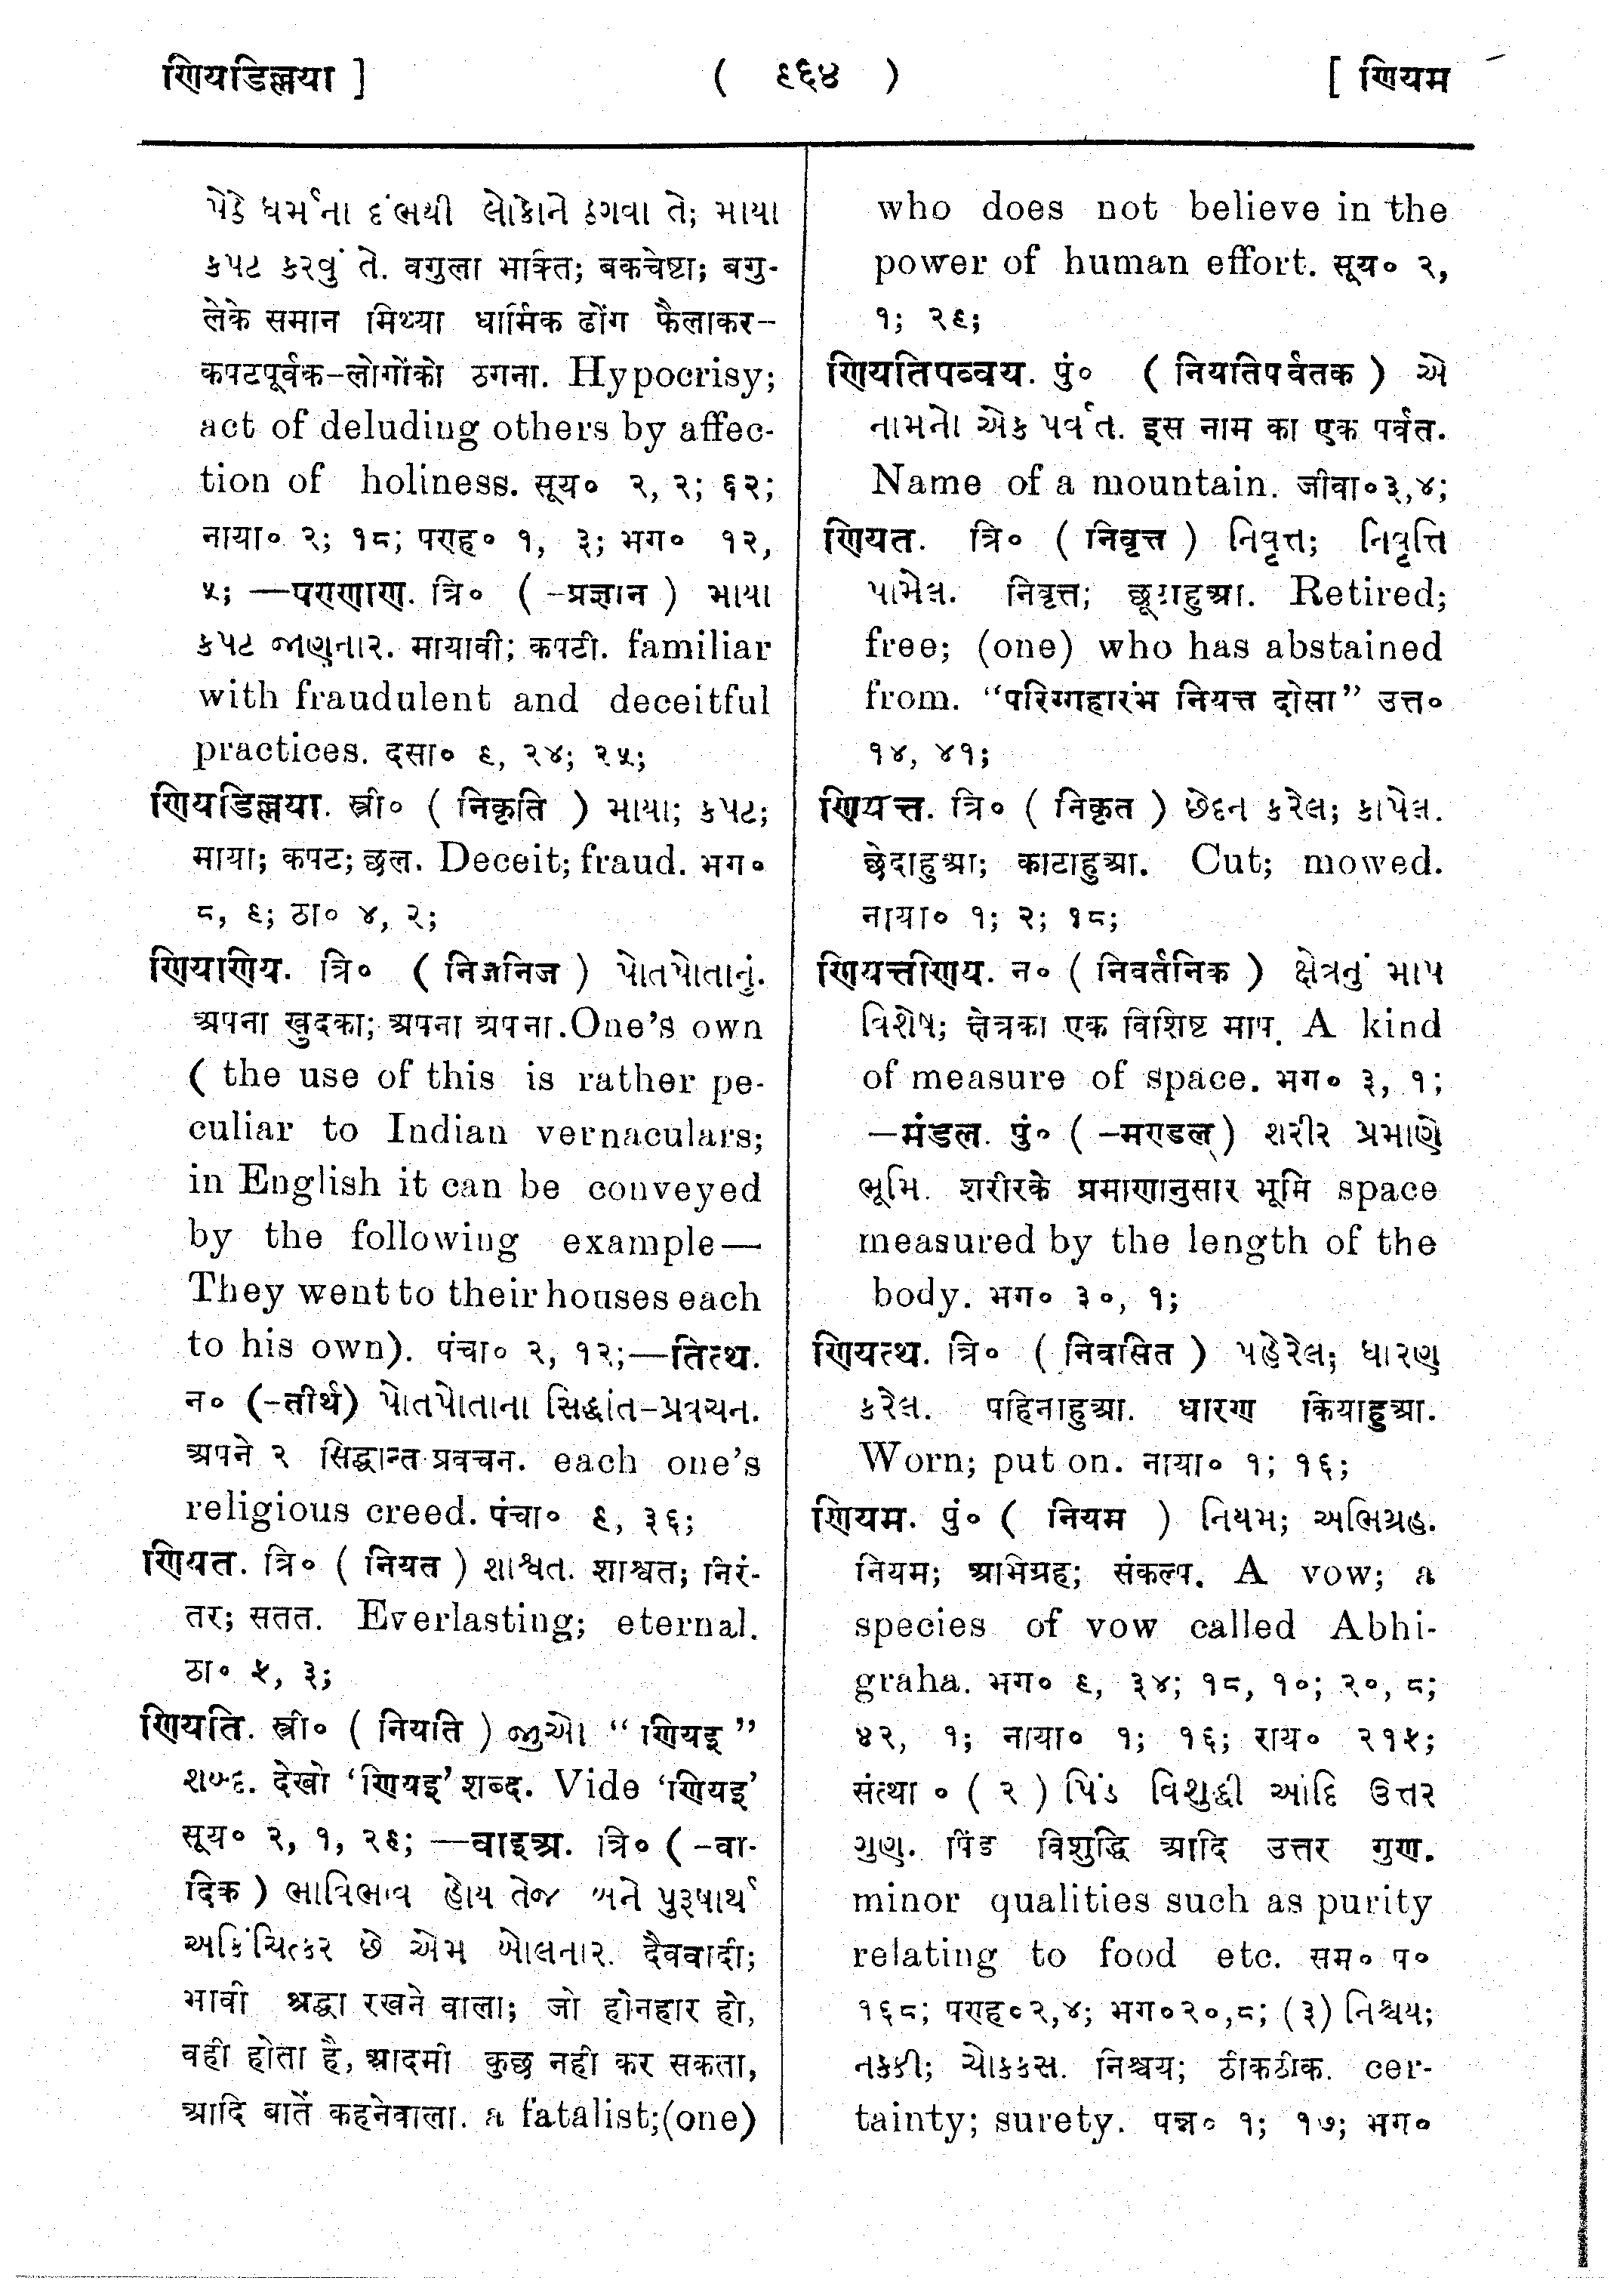 णियडिल्लया ]
( ९६४ )
[ णियम
પેઠે ધર્મના દંભથી લોકોને ઠગવા તે; માયા
કપટ કરવું તે. वगुला भक्ति; बकचेष्टा; बगु-
लेके समान मिथ्या धार्मिक ढोंग फैलाकर-
कपटपूर्वक-लोगोंको ठगना. Hypocrisy;
act of deluding others by affec-
tion of holiness. सूय० २, २; ६२;
नाया० २; १८; पराह० १, ३; भग० १२,
५; —पराणाण. त्रि० ( -प्रज्ञान ) માયા
કપટ જાણનાર. मायावी; कपटी. familiar
with fraudulent and deceitful
practices. दसा० ९, २४; २५;
णियडिल्लया. स्त्री० ( निकृति ) માયા; કપટ;
माया; कपट; छल. Deceit; fraud. भग०
८, ९; ठा० ४, २;
णियाणिय. त्रि० ( निजनिज ) પોતપોતાનું.
अपना खुदका; अपना अपना. One's own
( the use of this is rather pe-
culiar to Indian vernaculars;
in English it can be conveyed
by the following example—
They went to their houses each
to his own). पंचा० २, १२;—तित्थ.
न० (-तीर्थ) પોતપોતાના સિદ્ધાંત-પ્રવચન.
अपने २ सिद्धान्त प्रवचन. each one's
religious creed. पंचा० ९, ३६;
णियत. त्रि० ( नियत ) શાશ્વત. शाश्वत; निरं-
तर; सतत. Everlasting; eternal.
ठा० ५, ३;
णियति. स्त्री० ( नियति ) જુઓ " णियइ "
શબ્દ. देखो 'णियइ' शब्द. Vide 'णियइ'
सूय० २, १, २९; —वाइअ. त्रि० ( -वा-
दिक ) ભાવિભાવ હોય તેજ અને પુરૂષાર્થ
અકિંચિત્કર છે એમ બોલનાર. दैववादी;
भावी श्रद्धा रखने वाला; जो होनहार हो,
वही होता है, आदमी कुछ नहीं कर सकता,
आदि बातें कहनेवाला. a fatalist; (one)
who does not believe in the
power of human effort. सूय० २,
१; २९;
णियतिपव्वय. पुं० ( नियतिपर्वतक ) એ
નામનો એક પર્વત. इस नाम का एक पर्वत.
Name of a mountain. जीवा० ३,४;
णियत. त्रि० ( निवृत्त ) નિવૃત્ત; નિવૃત્તિ
પામેલ. निवृत्त; छूटाहुआ. Retired;
free; (one) who has abstained
from. "परिग्गहारंभ नियत्त दोसा" उत्त०
१४, ४१;
णियत्त. त्रि० ( निकृत ) છેદન કરેલ; કાપેલ.
छेदाहुआ; काटाहुआ. Cut; mowed.
नाया० १; २; १८;
णियत्तणिय. न० ( निवर्तनिक ) ક્ષેત્રનું માપ
વિશેષ; क्षेत्रका एक विशिष्ट माप. A kind
of measure of space. भग० ३, १;
—मंडल. पुं० ( -मण्डल ) શરીર પ્રમાણે
ભૂમિ. शरीरके प्रमाणानुसार भूमि space
measured by the length of the
body. भग० ३०, १;
णियत्थ. त्रि० ( निवसित ) પહેરેલ; ધારણ
કરેલ. पहिनाहुआ. धारण कियाहुआ.
Worn; put on. नाया० १; १६;
णियम. पुं० ( नियम ) નિયમ; અભિગ્રહ.
नियम; अभिग्रह; संकल्प. A vow; a
species of vow called Abhi-
graha. भग० ९, ३४; १८, १०; २०, ८;
४२, १; नाया० १; १६; राय० २१५;
संत्था ० ( २ ) પિંડ વિશુદ્ધી આદિ ઉત્તર
ગુણ. पिंड विशुद्धि आदि उत्तर गुण.
minor qualities such as purity
relating to food etc. सम० प०
१६८; पराह० २,४; भग० २०,८; (३) નિશ્ચય;
નક્કી; ચોક્કસ. निश्चय; ठीकठीक. cer-
tainty; surety. पन्न० १; १७; भग०